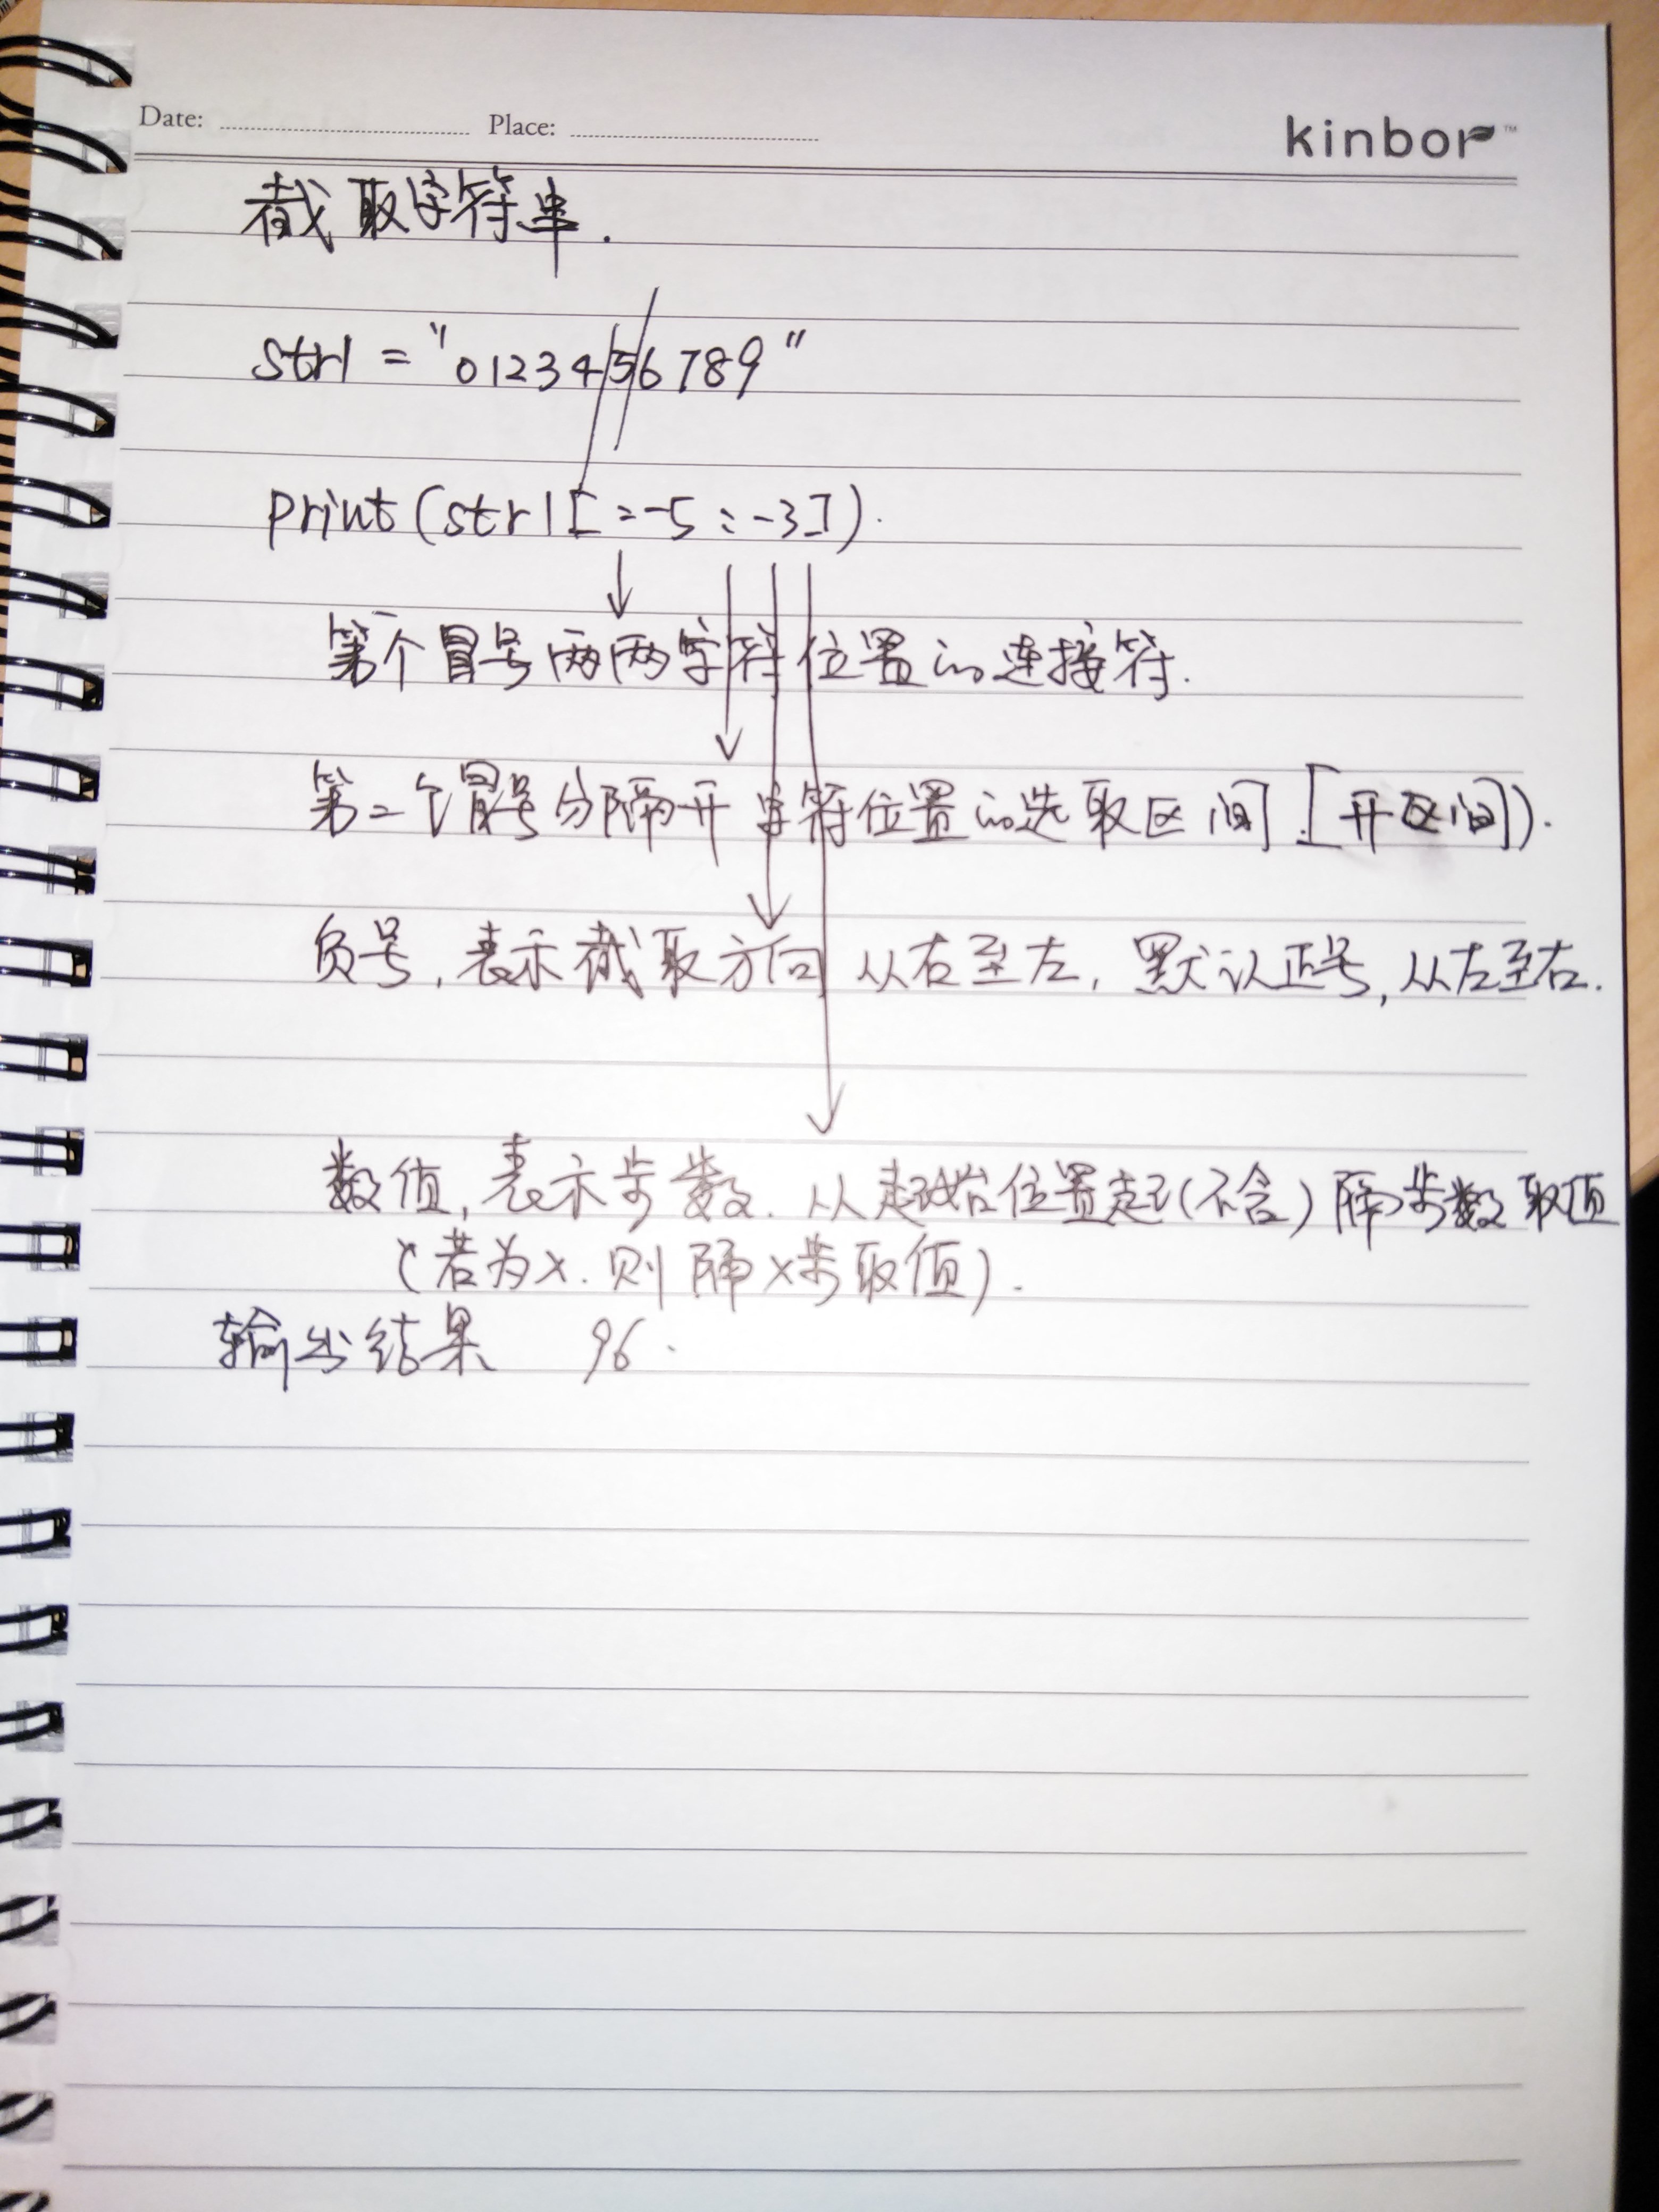 Date: Place: kinbor™
截取字符串.
str1 = "0123456789"
print(str1[:-5:-3]).
第一个冒号两两字符位置的连接符.
第二个冒号分隔开字符位置的选取区间[开区间]).
负号,表示截取方向 从右至左,默认正号,从左至右.
数值,表示步数.从起始位置起(不含)隔步数取值
(若为x.则隔x步取值).
输出结果 96.